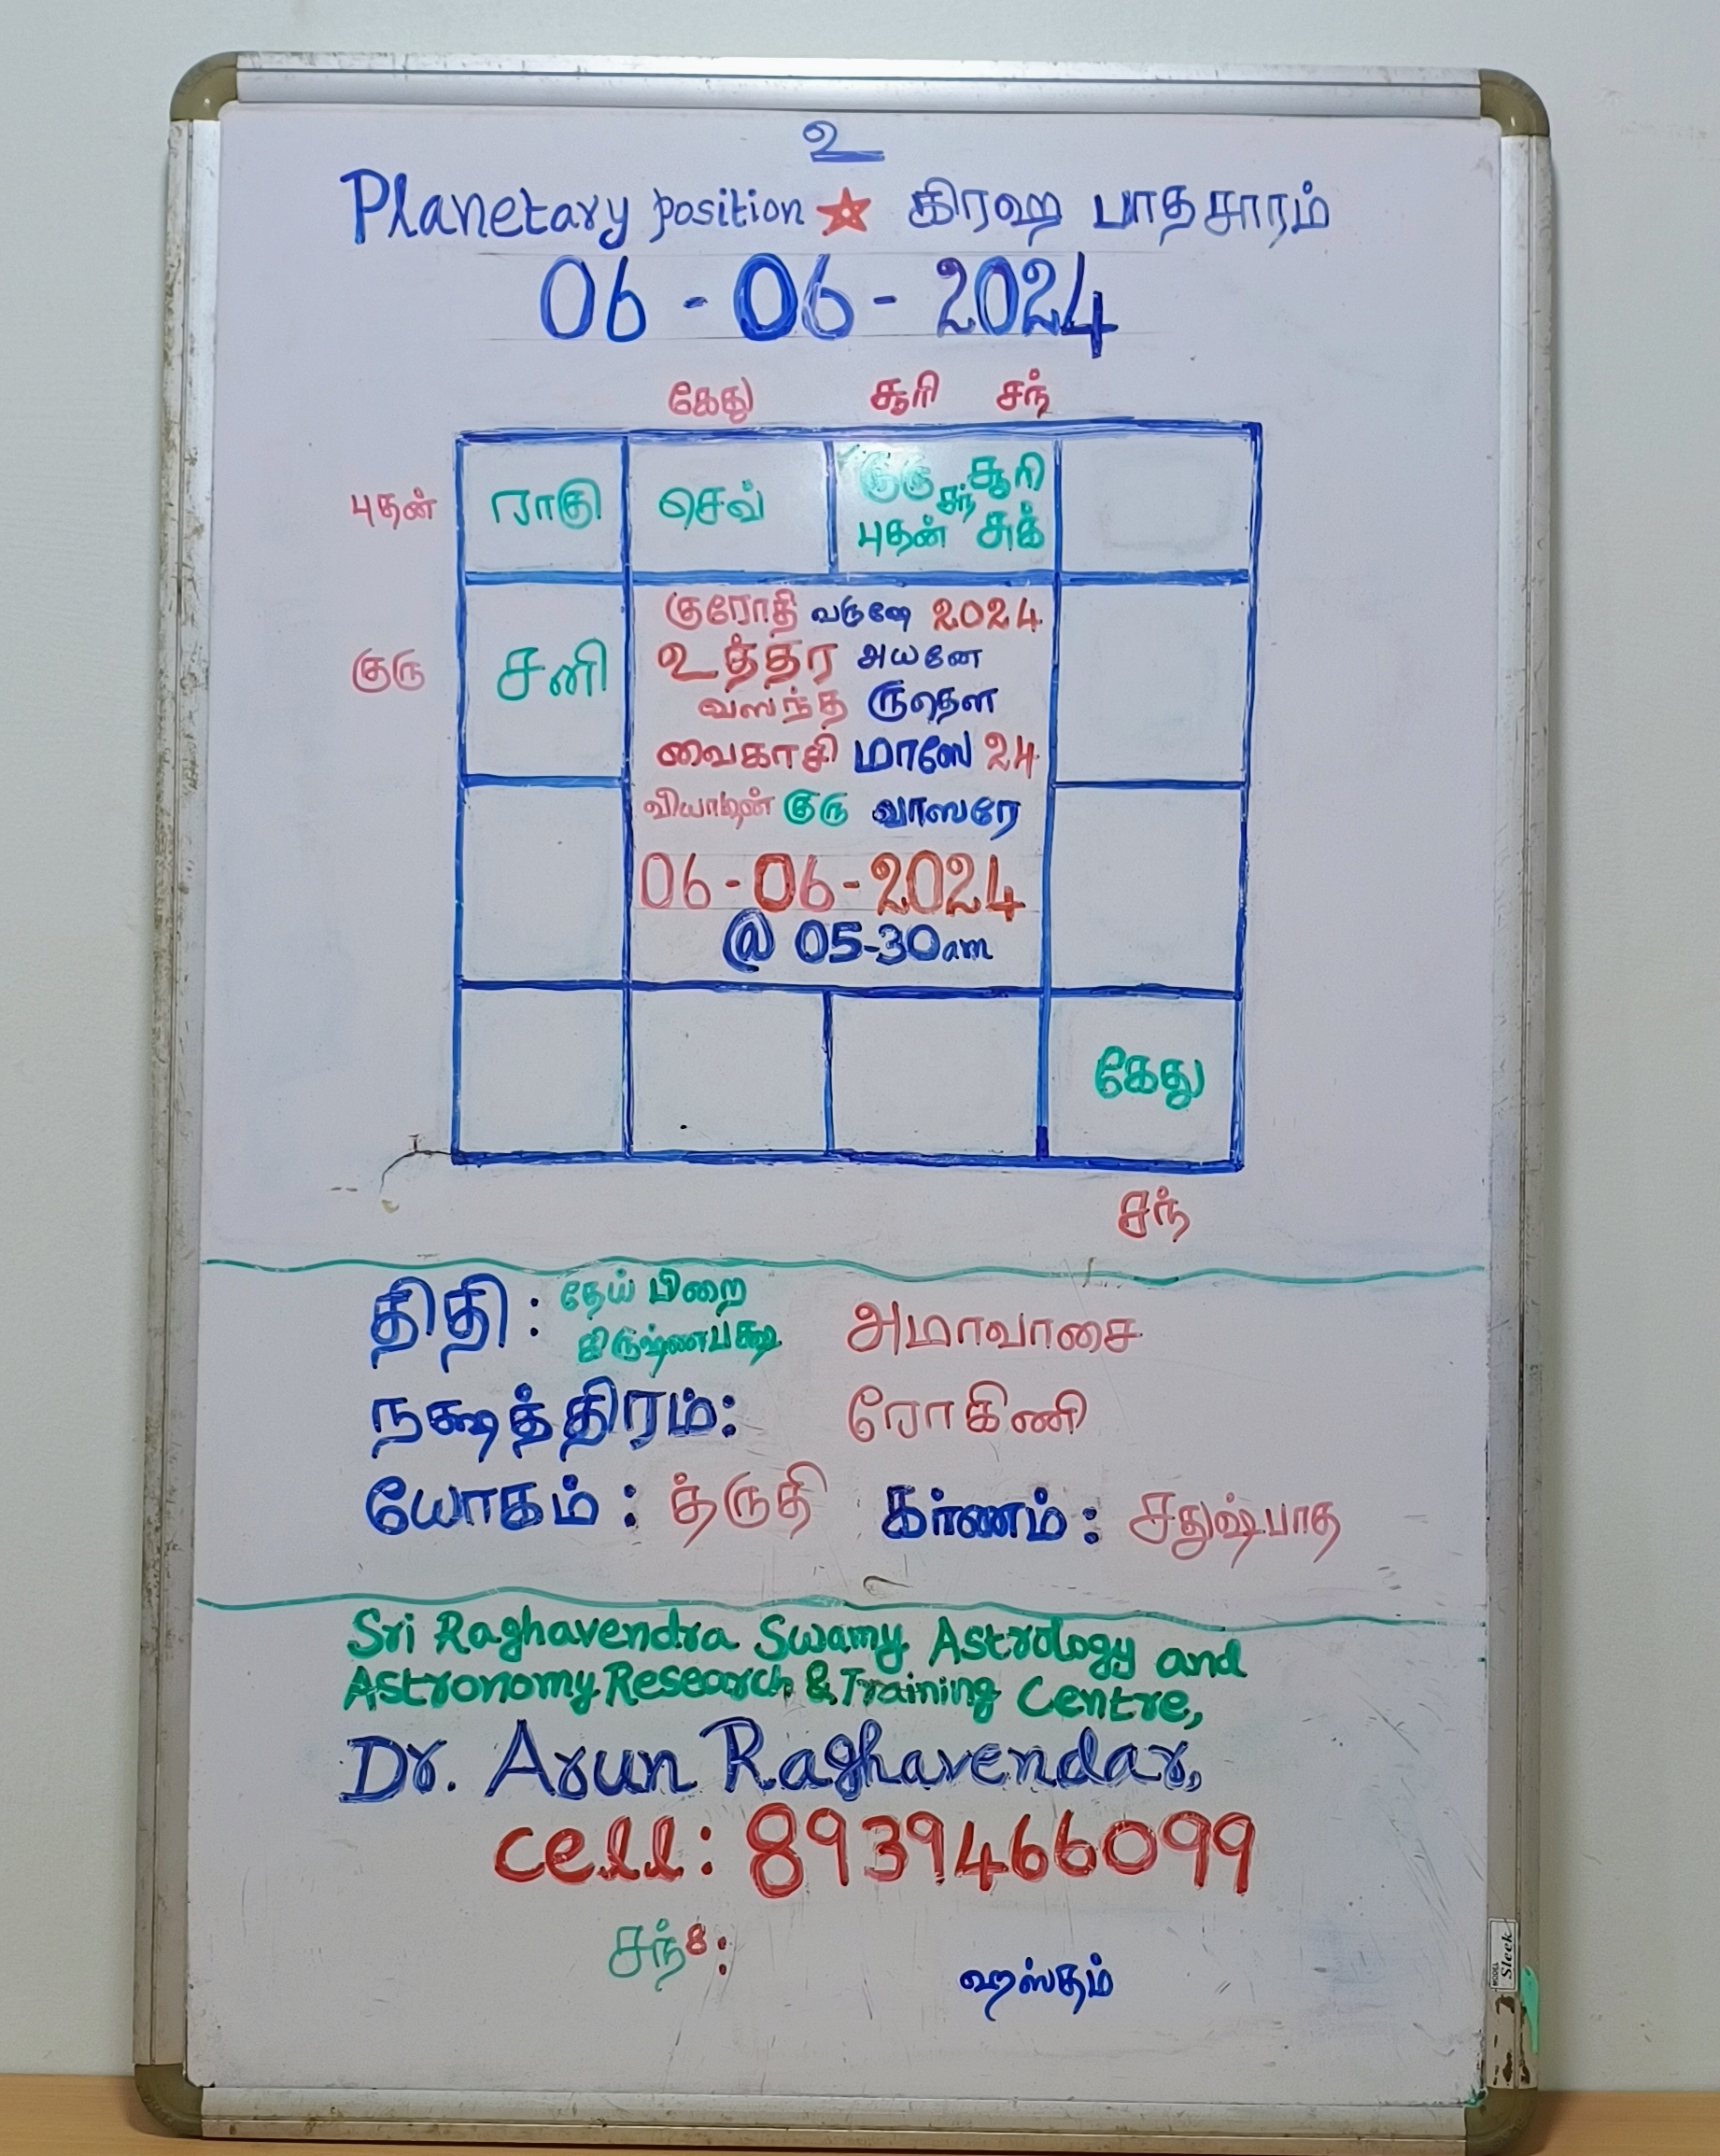 உ
Planetary position ★ கிரஹ பாதசாரம்
06 - 06 - 2024
கேது சூரி சந்
புதன் ராகு செவ் குரு சந் சூரி
புதன் சுக்
குரோதி வருஷே 2024
உத்தர அயனே
குரு சனி வஸந்த ருதௌ
வைகாசி மாஸே 24
வியாழன் குரு வாஸரே
06-06-2024
@ 05-30am
கேது
சந்
திதி : தேய் பிறை அமாவாசை
கிருஷ்ணபக்ஷ
நக்ஷத்திரம்: ரோகிணி
யோகம் : த்ருதி கர்ணம் : சதுஷ்பாத
Sri Raghavendra Swamy Astrology and
Astronomy Research & Training Centre,
Dr. Arun Raghavendar,
cell: 8939466099
சந் 8:
ஹஸ்தம்
Sleek